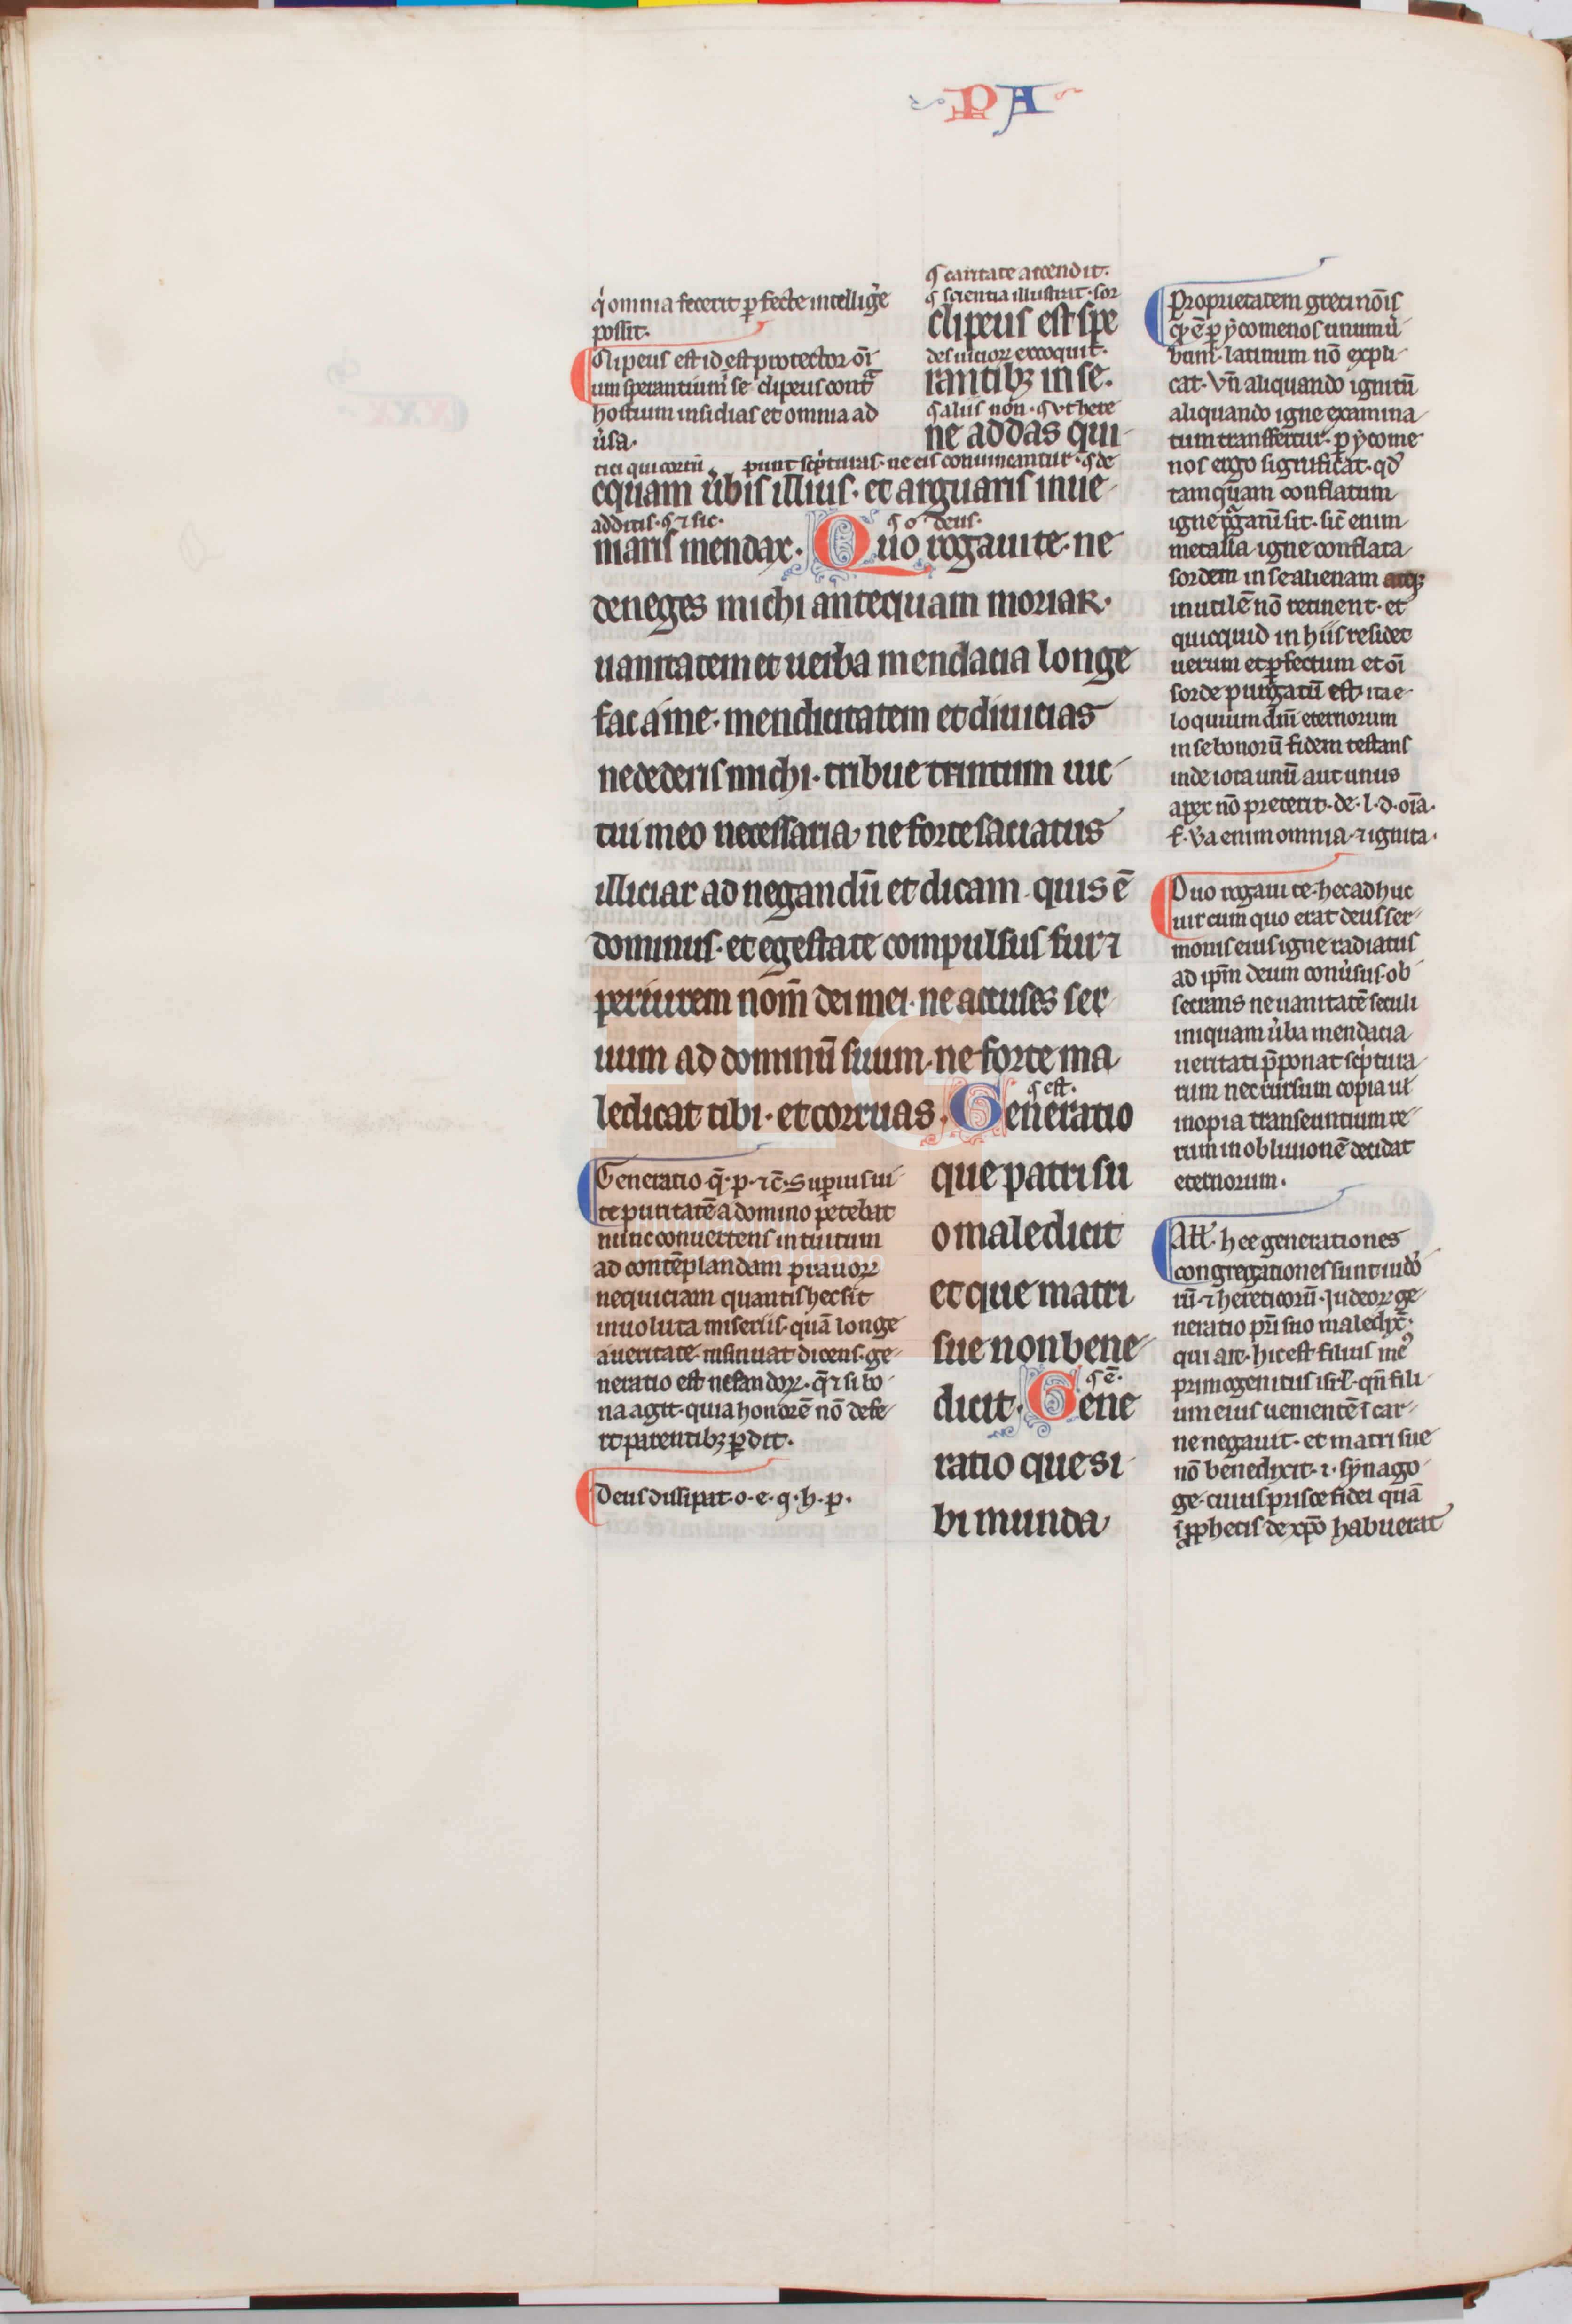 PA
qi omnia fecerit ꝑfecte intellige
possit.
Clipeus est id est protector oı̄
um sperantium ı̄ se clipeus contᵃ
hostium insidias et omnia ad
u̓sa.
¶ caritate accendit.
¶ scientia illustrat. sor
clipeus est spe
des uicioꝝ excoquit.
rantibꝫ in se.
¶ aliis non. ¶ vt here
ne addas qui
tici qui cortū punt scͥpturas. ne eis conuincantur. ¶ de
cquam u̓bis illius. et arguaris inue
additis. ¶ ⁊ sic. ¶ o deus.
niaris mendax. Quo rogaui te. ne
deneges michi antequam moriar.
uanitatem et uerba mendacia longe
fac a me. mendicitatem et diuicias
ne dederis michi. tribue tantum uic
tui meo necessaria, ne forte saciatus
illiciar ad negandū et dicam. quis ē
dominus. et egestate compulsus fur ⁊
periurem nom̄ dei mei. ne accuses ser
uum ad dominū suum. ne forte ma
¶ est.
ledicat tibi. et corruas. Generatio
que patri su
o maledicit
et que matri
sue non bene
¶ ē.
dicit. Gene
ratio que si
bi munda
Generatio. q̄. p. ⁊c̄. Superius ui
te puritatē a domino petebat
nunc conuertens intuitum
ad contēplandam prauoꝝ
nequiciam quantis hec sit
inuoluta miseriis. quā longe
a ueritate. insinuat dicens. ge
neratio est nefandoꝝ. q̄ ⁊ si bo
na agit. quia honorē nō defe
rt parentibꝫ ꝑdit.
Deus dissipat. o. e. q. h. p.
Proprietatem greci nōis
q̄ ē pẏcomenos unum u̓
bum. latinum nō expli
cat. Vn̄ aliquando ignitū
aliquando igne examina
tum transfertur. pẏcome
nos ergo significat. qd̓
tamquam conflatum
igne pᵍatū sit. sic̄ enim
metalla igne conflata
sordem in se alienam atqꝫ
inutilē nō retinent. et
quicquid in hiis residet
uerum et ꝑfectum et oı̄
sorde purgatū est. ita e
loquium dn̄i eternorum
in se bonorū fidem testans
inde iota unū aut unus
apex nō preterit. de. l. d. oı̄a.
f. va enim omnia. ⁊ ignita.
Duo rogaui te. hec adhuc
uir cum quo erat deus ser
monis eius igne radiatus
ad ipm̄ deum conu̓sus. ob
secrans ne uanitatē seculi
iniquam u̓ba mendacia
ueritati p̄ponat scͥptura
rum nec rursum copia ul
inopia transeuntium re
rum in obliuionē decidat
eternorum.
All̓. hee generationes
congregationes sunt iud̓o
rū. ⁊ hereticorū. Judeoꝝ ge
neratio pr̄i suo maledix̄.
qui ait. hic est filius me᷒
primogenitus isrl̓. qn̄ fili
um eius uenientē ı̄ car
ne negauit. et matri sue
nō benedixit. ı. sẏnago
ge. cuius prisce fidei quā
ı̄ ꝓphetis de xp̄o habuerat